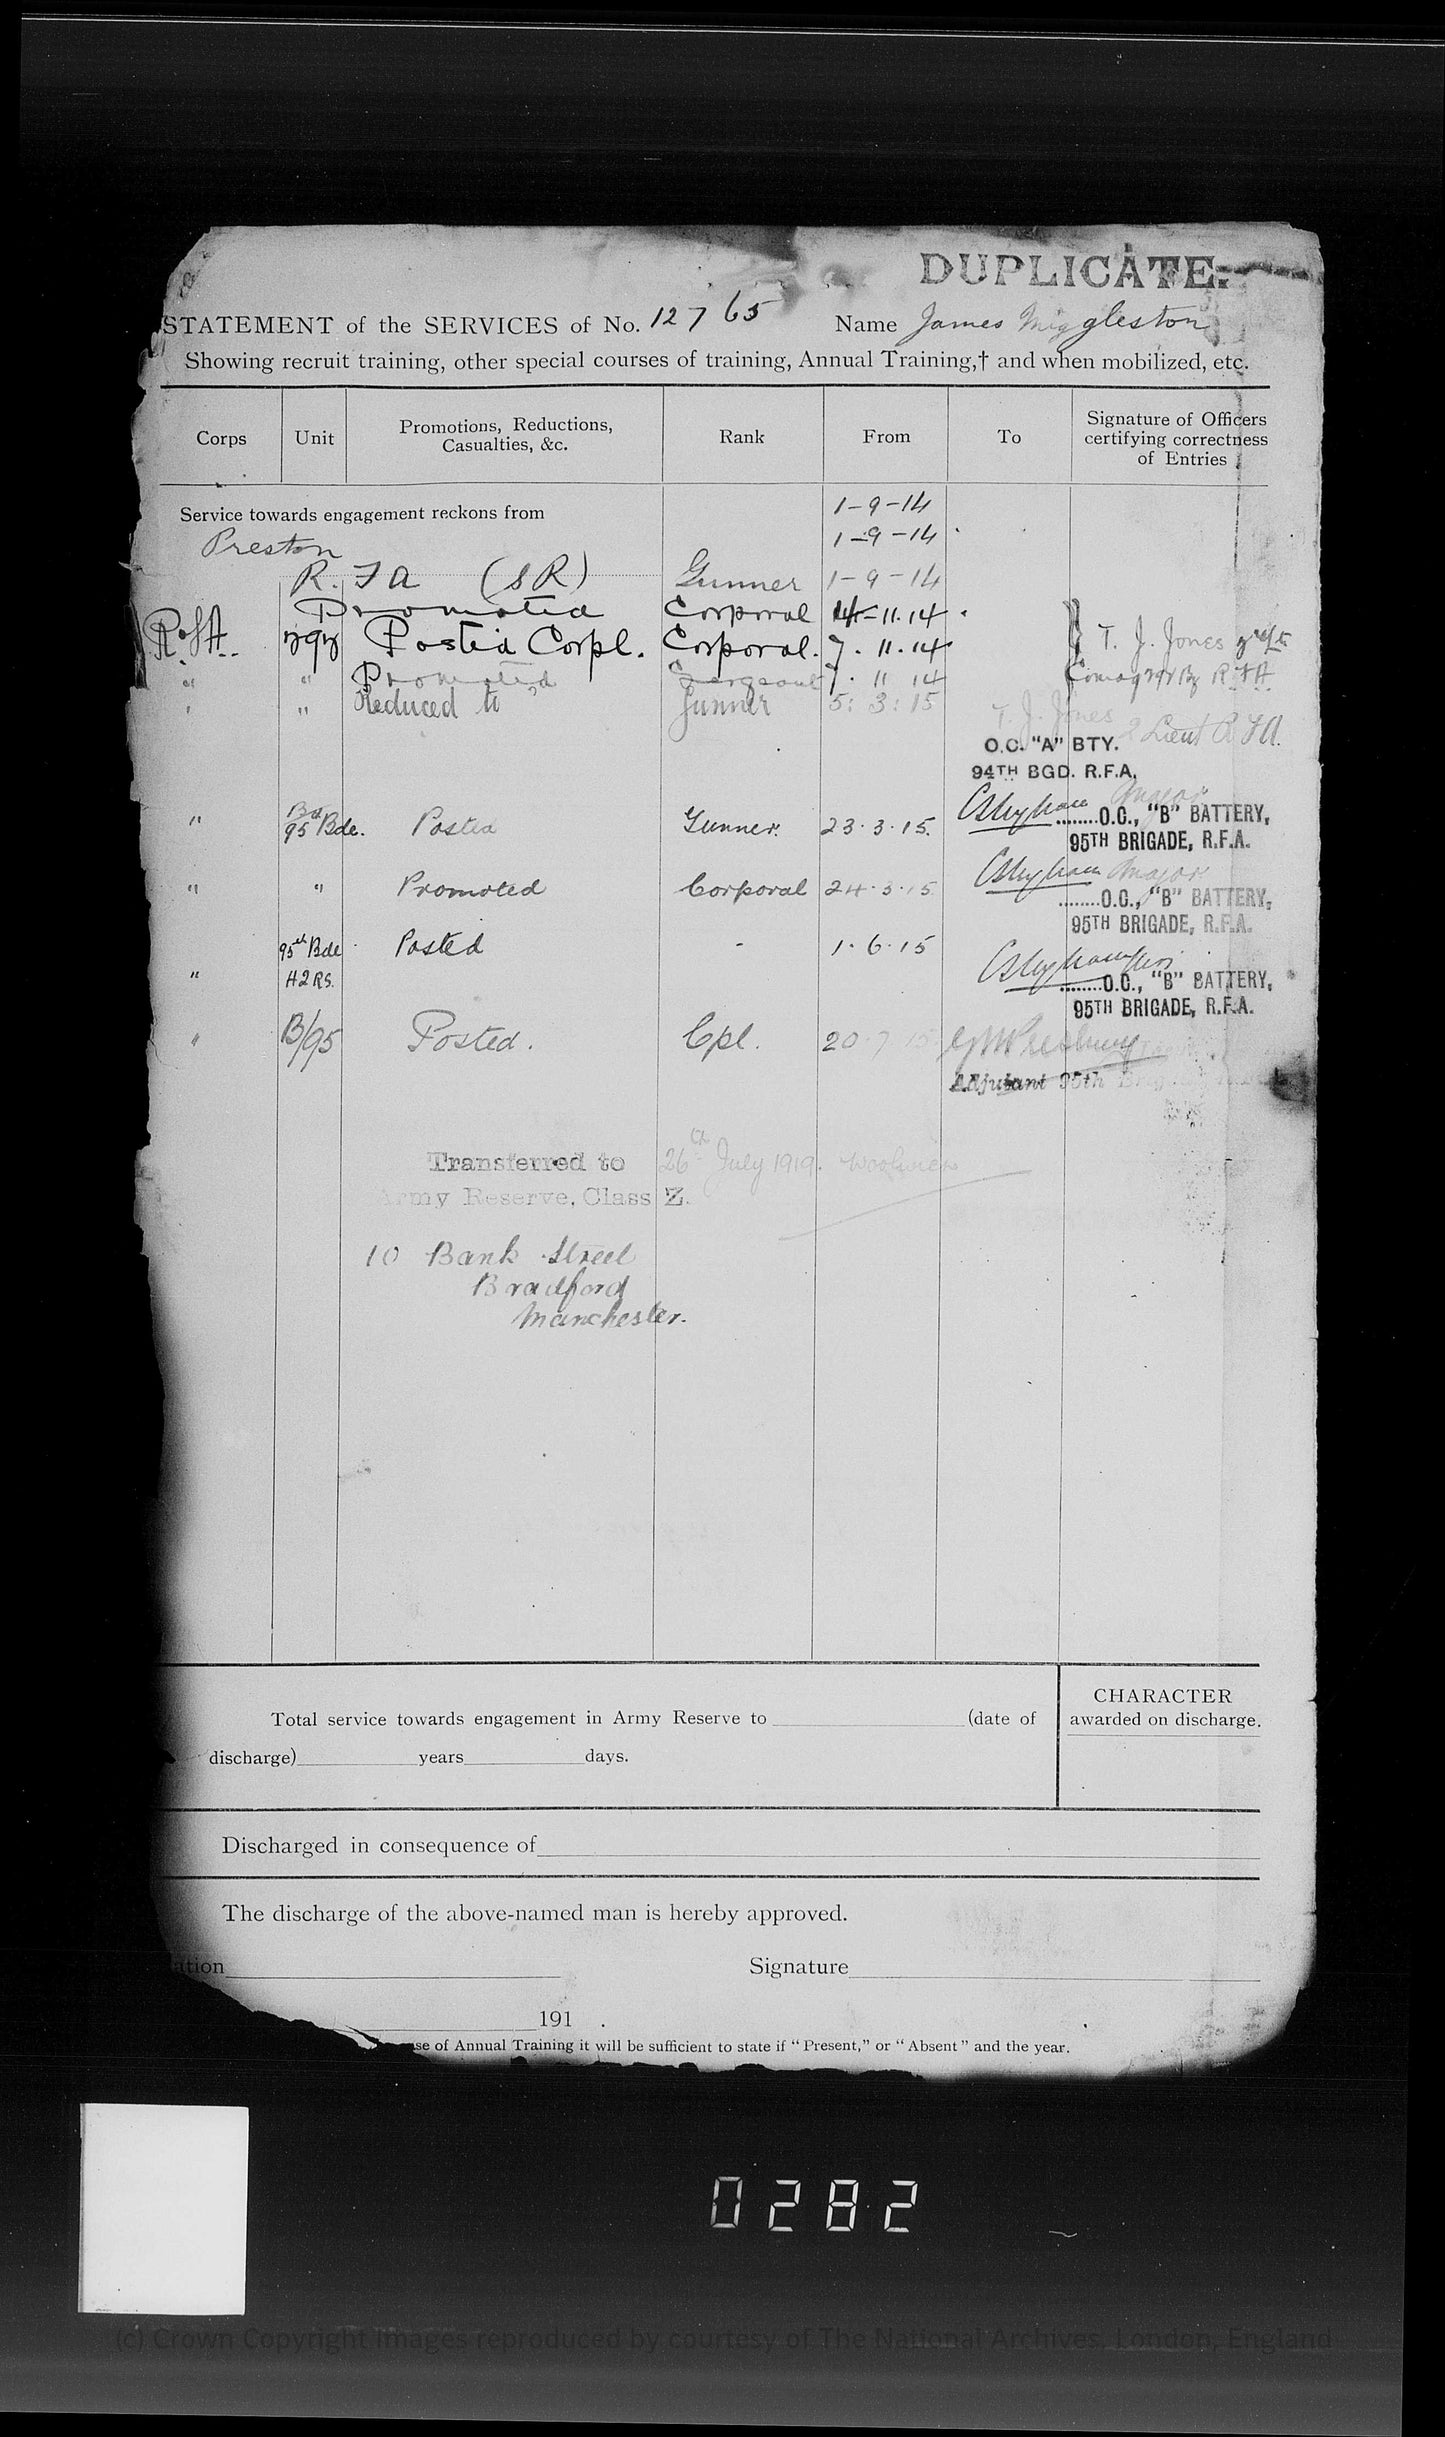 DUPLICATE.
STATEMENT of the SERVICES of No. 12765 Name James Miggleston
Showing recruit training, other special courses of training, Annual Training,† and when mobilized, etc.
Corps Unit Promotions, Reductions, Casualties, &c. Rank From To Signature of Officers certifying correctness of Entries
1-9-14
Service towards engagement reckons from
1-9-14
Preston
R.F.A (SR) Gunner 1-9-14
Promoted Corporal 14-11.14
R.F.A. Posted Corpl. Corporal. 7.11.14 T. J. Jones
" " Promoted Sergeant 7.11 14 R.F.A.
" " Reduced to Gunner 5:3:15
T. J. Jones 2 Lieut R.F.A.
O.C. "A" BTY.
94TH BGD. R.F.A.
Major
" 95 Bde. Posted Gunner. 23.3.15. O.C., "B" BATTERY,
95TH BRIGADE, R.F.A.
Major
" " Promoted Corporal 24.3.15 O.C., "B" BATTERY,
95TH BRIGADE, R.F.A.
95th Bde Posted - 1.6.15
" H2RS. O.C., "B" BATTERY,
95TH BRIGADE, R.F.A.
" B/95 Posted. Cpl. 20.7.15
Adjutant 95th Brigade
Transferred to 26th July 1919. Woolwich
Army Reserve, Class Z.
10 Bank Street
Bradford
Manchester.
CHARACTER
Total service towards engagement in Army Reserve to (date of awarded on discharge.
discharge) years days.
Discharged in consequence of
The discharge of the above-named man is hereby approved.
ation Signature
191 .
se of Annual Training it will be sufficient to state if "Present," or "Absent" and the year.
0282
(c) Crown Copyright Images reproduced by courtesy of The National Archives, London, England